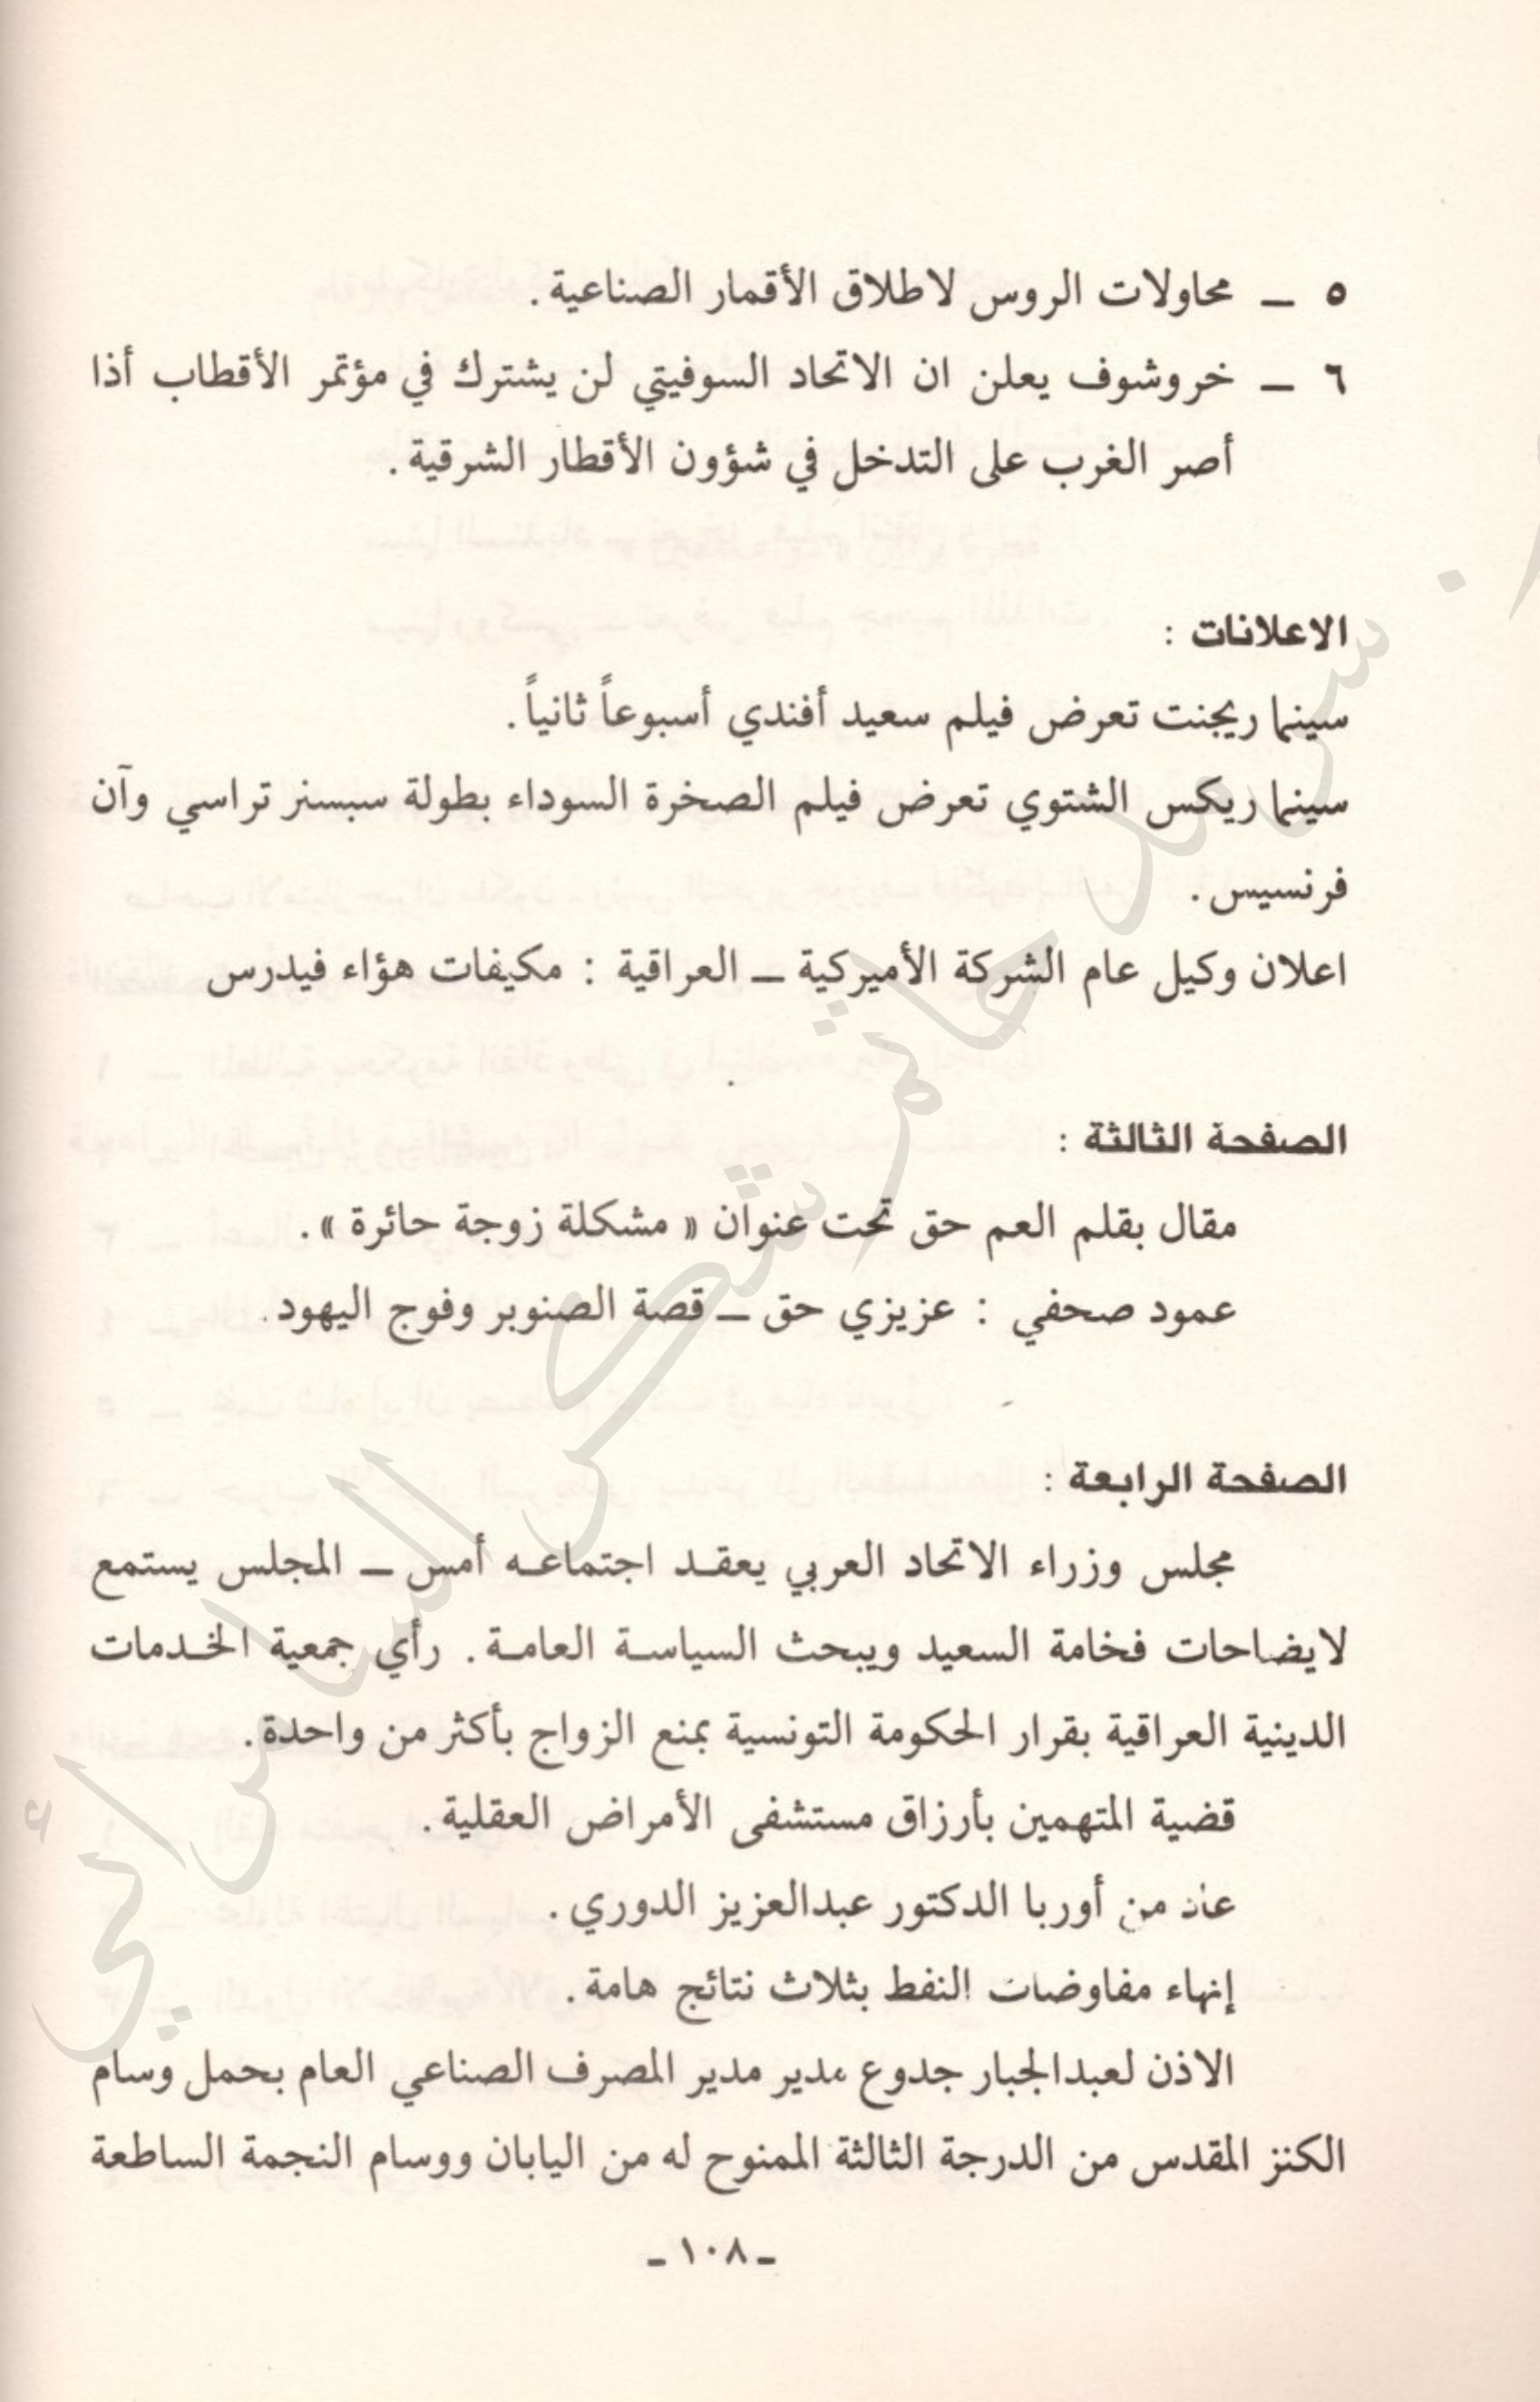 ٥ ـ محاولات الروس لاطلاق الأقمار الصناعية.
٦ ـ خروشوف يعلن ان الاتحاد السوفيتي لن يشترك في مؤتمر الأقطاب أذا
أصر الغرب على التدخل في شؤون الأقطار الشرقية.
الاعلانات :
سينما ريجنت تعرض فيلم سعيد أفندي أسبوعاً ثانياً.
سينما ريكس الشتوي تعرض فيلم الصخرة السوداء بطولة سبسنر تراسي وآن
فرنسيس.
اعلان وكيل عام الشركة الأميركية ـ العراقية : مكيفات هؤاء فيدرس
الصفحة الثالثة :
مقال بقلم العم حق تحت عنوان « مشكلة زوجة حائرة ».
عمود صحفي : عزيزي حق ـ قصة الصنوبر وفوج اليهود.
الصفحة الرابعة :
مجلس وزراء الاتحاد العربي يعقد اجتماعه أمس ـ المجلس يستمع
لايضاحات فخامة السعيد ويبحث السياسة العامة. رأي جمعية الخدمات
الدينية العراقية بقرار الحكومة التونسية بمنع الزواج بأكثر من واحدة.
قضية المتهمين بأرزاق مستشفى الأمراض العقلية.
عاد من أوربا الدكتور عبدالعزيز الدوري.
إنهاء مفاوضات النفط بثلاث نتائج هامة.
الاذن لعبدالجبار جدوع مدير مدير المصرف الصناعي العام بحمل وسام
الكنز المقدس من الدرجة الثالثة الممنوح له من اليابان ووسام النجمة الساطعة
ـ ١٠٨ ـ